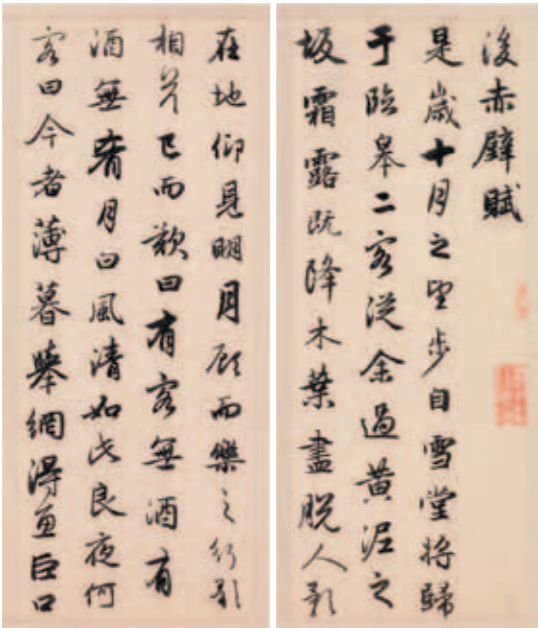 後赤壁賦
是歲十月之望步自雪堂將歸
于臨皋二客從余過黃泥之
坂霜露既降木葉盡脫人影
在地仰見明月顧而樂之行歌
相答已而歎曰有客無酒有
酒無肴月白風清如此良夜何
客曰今者薄暮舉網得魚巨口